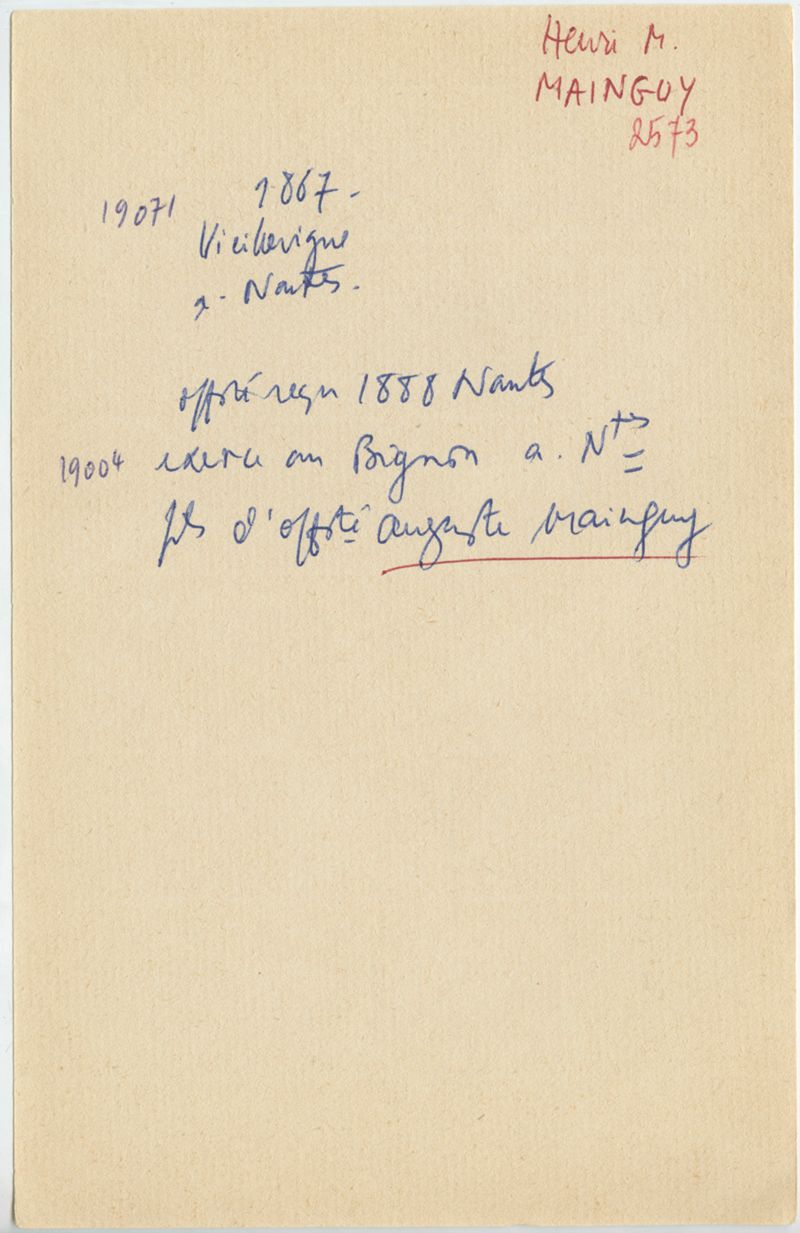 Henri M.
MAINGUY
2573
19071 1867.
Vieillevigne
a. Nantes.
offsté reçu 1888 Nantes
19004 exerce au Bignon a. Ntes
fils d'offsté auguste Mainguy